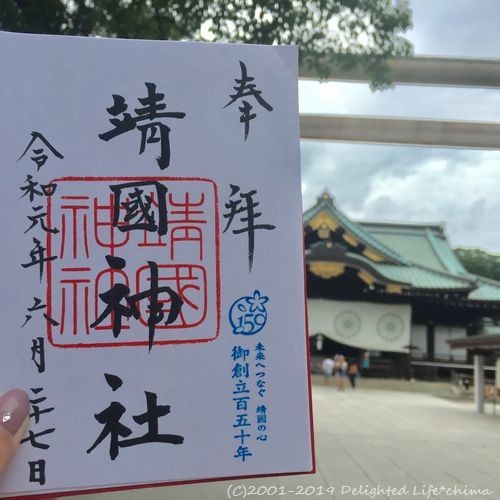 奉拝
靖國神社
令和元年六月二十七日
靖國
神社
150
未来へつなぐ 靖國の心
御創立百五十年
(C)2001-2019 Delighted Life*chima